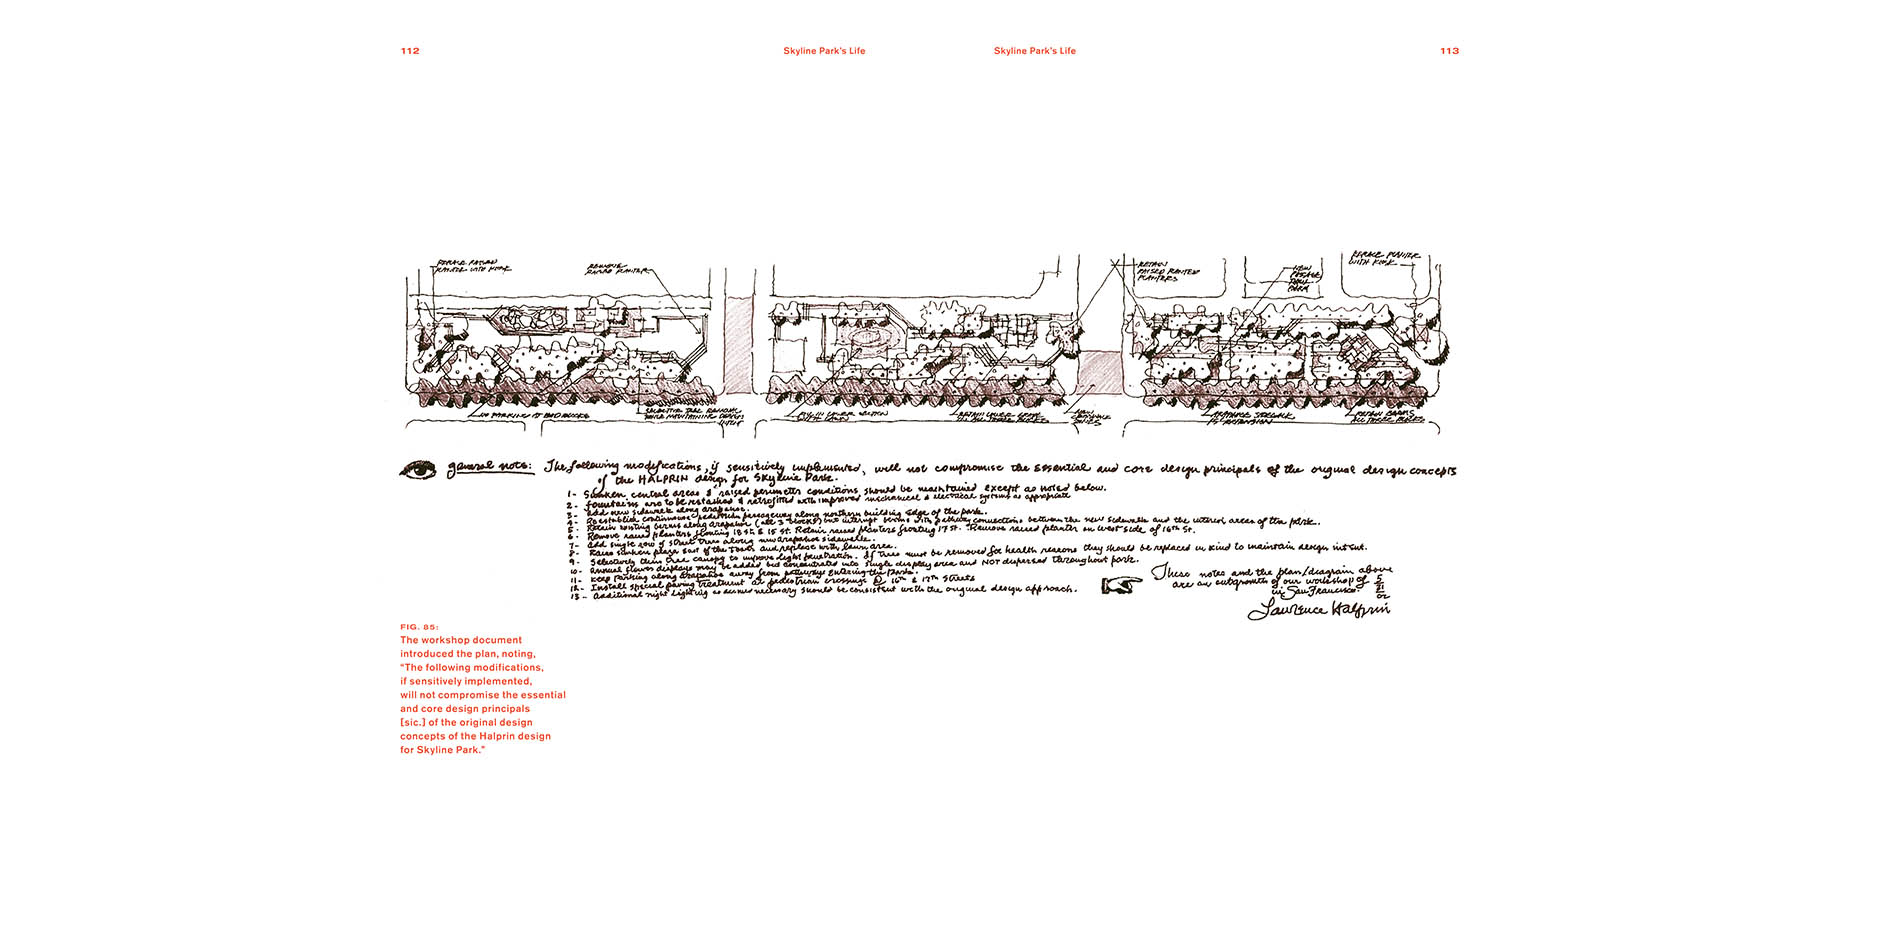 112
Skyline Park's Life
Skyline Park's Life
113
REMOVE
RAISED PLANTER
RETAIN
RAISED PLANTED
PLANTERS
NEW
PARK
REPLACE PLANTER
WITH KIOSK
NO PARKING AT MID BLOCKS
SELECTIVE TREE REMOVAL
WHILE MAINTAINING DESIGN
INTENT
RETAIN BERMS
ALL THREE BLOCKS
general note: The following modifications, if sensitively implemented, will not compromise the essential and core design principals of the original design concepts
of the HALPRIN design for Skyline Park.
1- Sunken central areas & raised perimeter conditions should be maintained except as noted below.
2- fountains are to be restored & retrofitted with improved mechanical & electrical systems as appropriate
3- add new sidewalk along arapahoe.
4- Reestablish continuous pedestrian passageway along northern building edge of the park.
5- Retain existing berms along arapahoe (all 3 blocks) but interrupt berms with pathway connections between the new sidewalk and the interior areas of the park.
6- Remove raised planters fronting 18th & 15 st. Retain raised planters fronting 17 st. Remove raised planter on west side of 16th St.
7- add single row of street trees along new arapahoe sidewalk.
8- Raise sunken plaza east of the Tower and replace with lawn area.
9- Selectively thin tree canopy to improve light penetration. If trees must be removed for health reasons they should be replaced in kind to maintain design intent.
10- annual flower displays may be added but concentrated into single display area and NOT dispersed throughout park.
11- Keep parking along arapahoe away from pathways entering the park.
12- Install special paving treatment at pedestrian crossings @ 16th & 17th streets
13- additional night lighting as deemed necessary should be consistent with the original design approach.
These notes and the plan/diagram above
are an outgrowth of our workshop of 5/21/02
in San Francisco.
Lawrence Halprin
FIG. 85:
The workshop document
introduced the plan, noting,
“The following modifications,
if sensitively implemented,
will not compromise the essential
and core design principals
[sic.] of the original design
concepts of the Halprin design
for Skyline Park.”